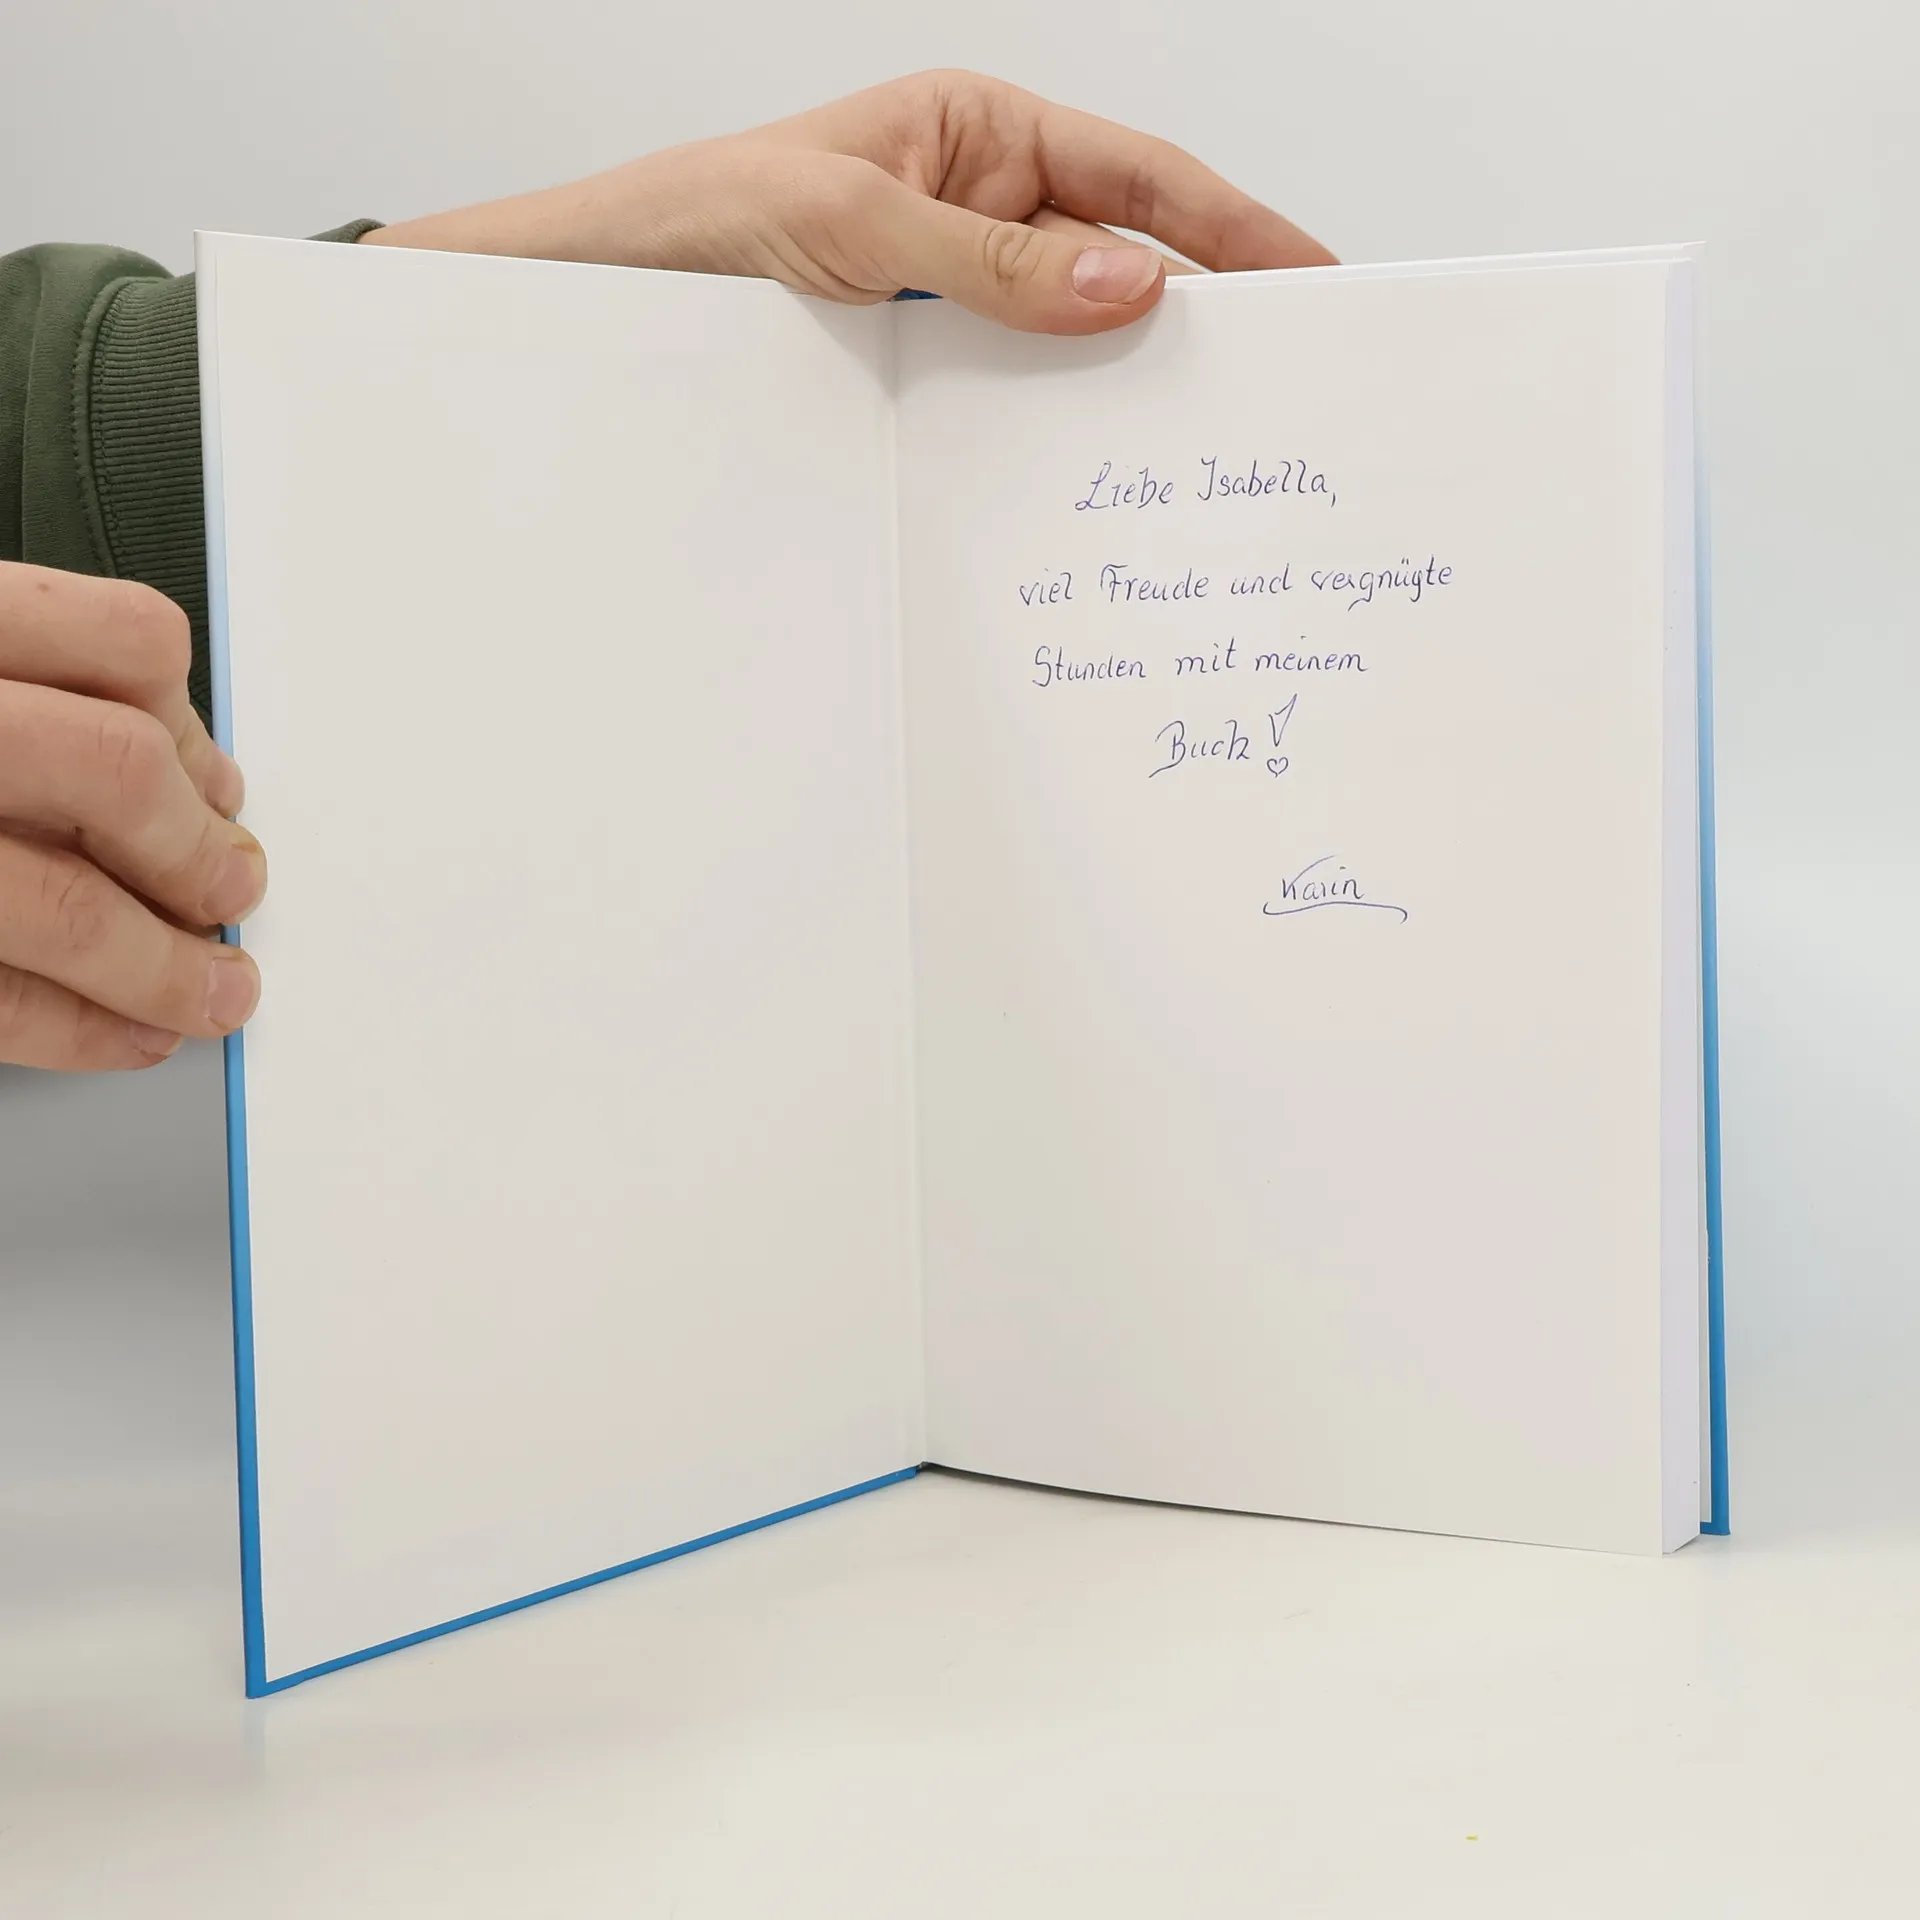 Liebe Isabella,
viel Freude und vergnügte
Stunden mit meinem
Buch!
Karin